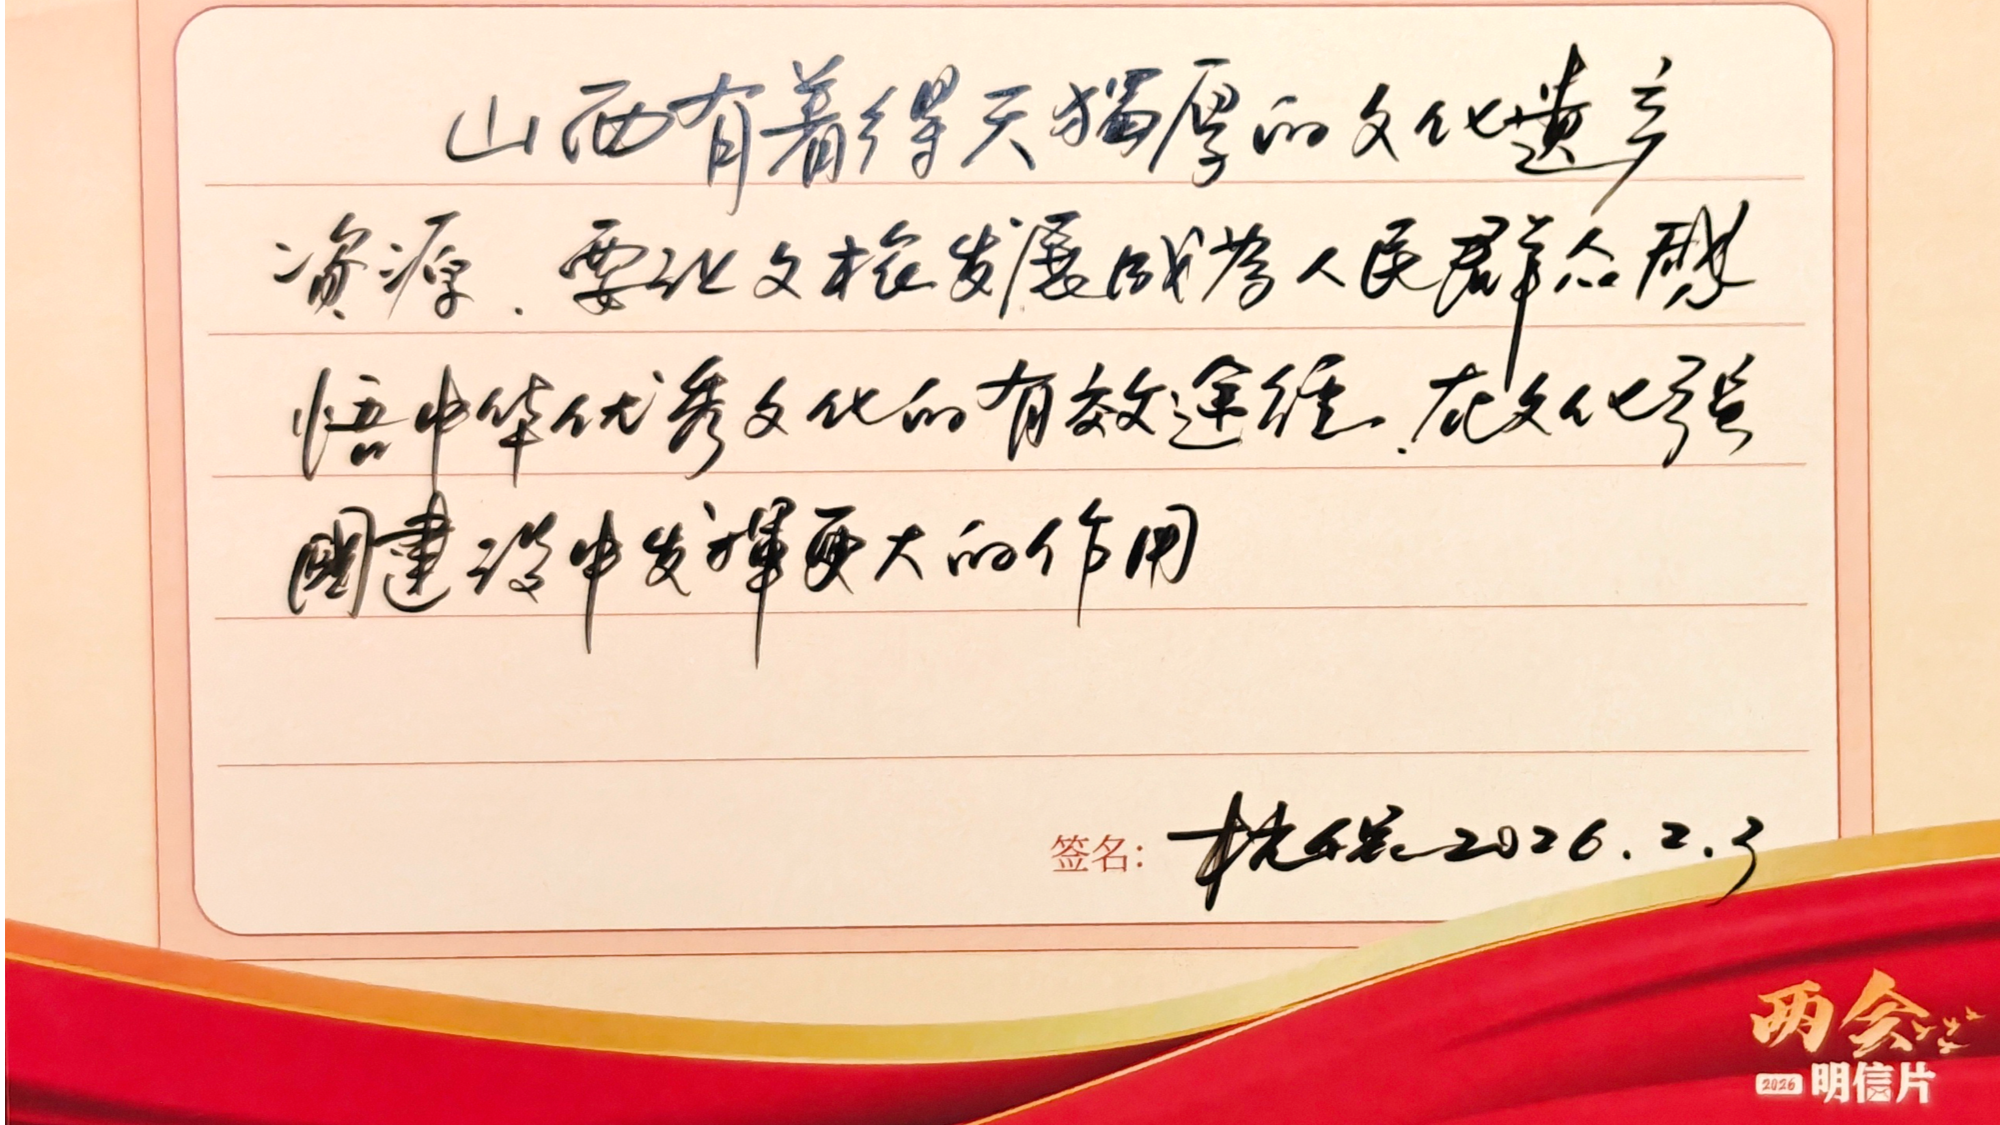 山西有着得天独厚的文化遗产
资源.要让文旅发展成为人民群众感
悟中华优秀文化的有效途径.在文化强
国建设中发挥更大的作用
签名: 2026.2.3
两会
2026 明信片